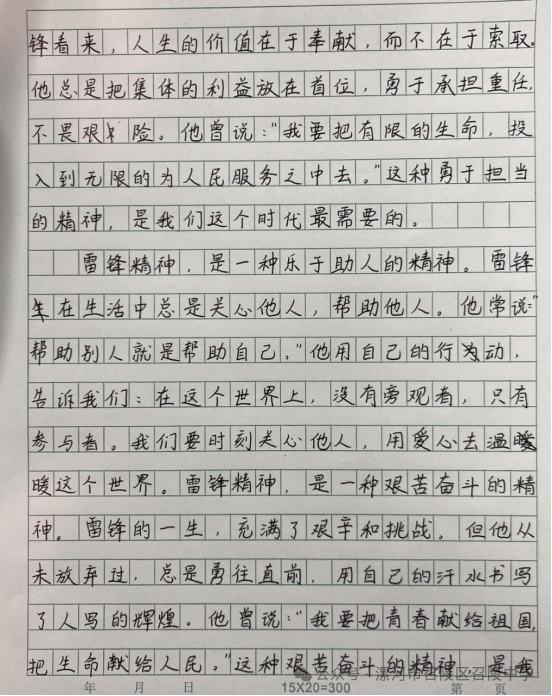 锋看来，人生的价值在于奉献，而不在于索取。
他总是把集体的利益放在首位，勇于承担重任，
不畏艰险。他曾说：“我要把有限的生命，投
入到无限的为人民服务之中去。”这种勇于担当
的精神，是我们这个时代最需要的。
雷锋精神，是一种乐于助人的精神。雷锋
在生活中总是关心他人，帮助他人。他常说：“
帮助别人就是帮助自己。”他用自己的行动，
告诉我们：在这个世界上，没有旁观者，只有
参与者。我们要时刻关心他人，用爱心去温暖
暖这个世界。雷锋精神，是一种艰苦奋斗的精
神。雷锋的一生，充满了艰辛和挑战。但他从
未放弃过，总是勇往直前，用自己的汗水书写
了人写的辉煌。他曾说：“我要把青春献给祖国，
把生命献给人民。”这种艰苦奋斗的精神，是我
公众号·漯河市召陵区召陵中学
年 月 日 15X20=300 第 页